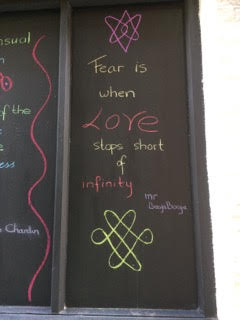 nsual
n
of the
e
ess
Chardin
Fear is
when
Love
stops short
of
infinity
mr
BoojaBooja